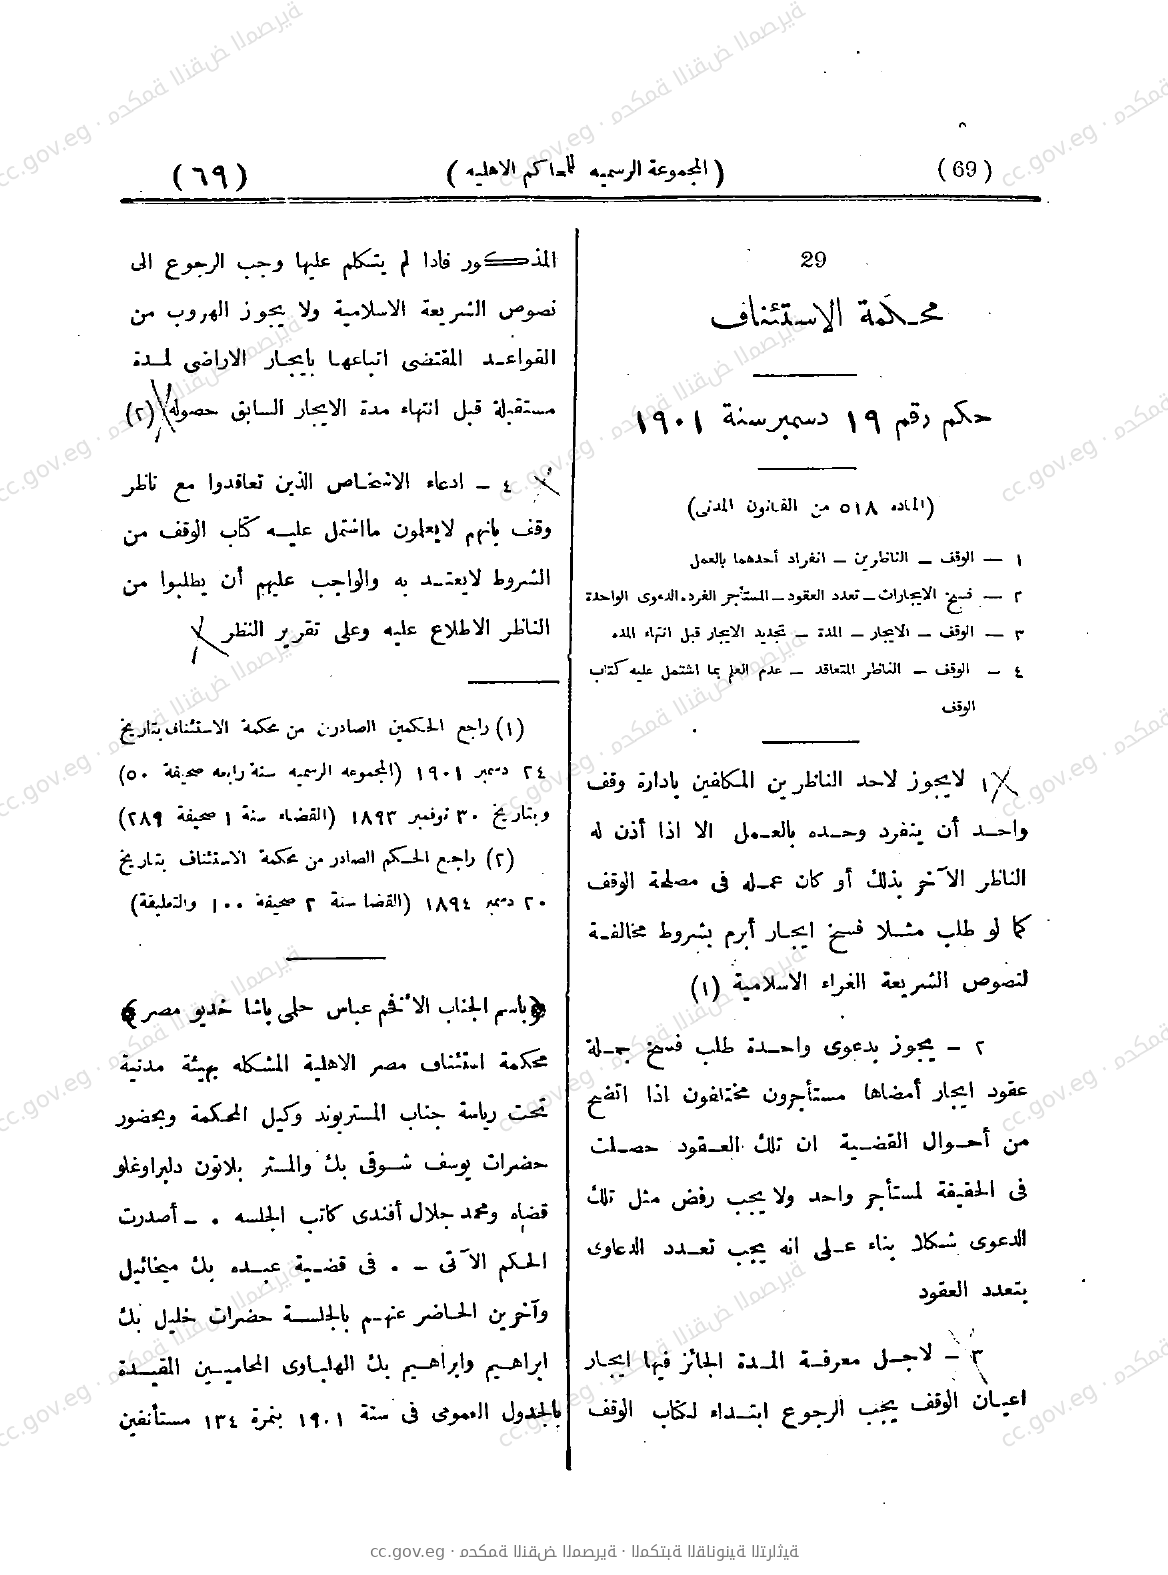 (69)
( المجموعة الرسميه للمحاكم الاهليه )
(٦٩)
29
محكمة الاستئناف
حكم رقم ١٩ دسمبر سنة ١٩٠١
(الماده ٥١٨ من القانون المدنى)
١ — الوقف — الناظرين — انفراد أحدهما بالعمل
٢ — فسخ الايجارات — تعدد العقود — المستأجر الفرد. الدعوى الواحدة
٣ — الوقف — الايجار — المدة — تجديد الايجار قبل انتهاء المده
٤ — الوقف — الناظر المتعاقد — عدم العلم بما اشتمل عليه كتاب
الوقف
١ لايجوز لاحد الناظرين المكلفين بادارة وقف
واحد أن ينفرد وحده بالعمل الا اذا أذن له
الناظر الآخر بذلك أو كان عمله فى مصلحة الوقف
كما لو طلب مثلا فسخ ايجار أبرم بشروط مخالفة
لنصوص الشريعة الغراء الاسلامية (١)
٢ — يجوز بدعوى واحدة طلب فسخ جملة
عقود ايجار أمضاها مستأجرون مختلفون اذا اتضح
من أحوال القضية ان تلك العقود حصلت
فى الحقيقة لمستأجر واحد ولا يجب رفض مثل تلك
الدعوى شكلا بناء على انه يجب تعدد الدعاوى
بتعدد العقود
٣ — لاجل معرفة المدة الجائز فيها ايجار
اعيان الوقف يجب الرجوع ابتداء لكتاب الوقف
المذكور فاذا لم يتكلم عليها وجب الرجوع الى
نصوص الشريعة الاسلامية ولا يجوز الهروب من
القواعد المقتضى اتباعها بايجار الاراضى لمدة
مستقبلة قبل انتهاء مدة الايجار السابق حصوله (٢)
٤ — ادعاء الاشخاص الذين تعاقدوا مع ناظر
وقف بانهم لايعلمون مااشتمل عليه كتاب الوقف من
الشروط لايعتد به والواجب عليهم أن يطلبوا من
الناظر الاطلاع عليه وعلى تقرير النظر
(١) راجع الحكمين الصادرين من محكمة الاستئناف بتاريخ
٢٤ دسمبر ١٩٠١ (المجموعه الرسميه سنة رابعه صحيفة ٥٠)
وبتاريخ ٣٠ نوفمبر ١٨٩٣ (القضاء سنة ١ صحيفة ٢٨٩)
(٢) راجع الحكم الصادر من محكمة الاستئناف بتاريخ
٢٠ دسمبر ١٨٩٤ (القضا سنة ٢ صحيفة ١٠٠ والتعليقة)
﴿باسم الجناب الافخم عباس حلمى باشا خديو مصر﴾
محكمة استئناف مصر الاهلية المشكله بهيئة مدنية
تحت رياسة جناب المستربوند وكيل المحكمة وبحضور
حضرات يوسف شوقى بك والمستر بلاتون دلبراوغلو
قضاه ومحمد جلال أفندى كاتب الجلسه . — أصدرت
الحكم الآتى — . فى قضية عبده بك ميخائيل
وآخرين الحاضر عنهم بالجلسة حضرات خليل بك
ابراهيم وابراهيم بك الهلباوى المحاميين المقيدة
بالجدول العمومى فى سنة ١٩٠١ بنمرة ١٣٤ مستأنفين
cc.gov.eg · محكمة النقض المصرية · المكتبة القانونية التراثية